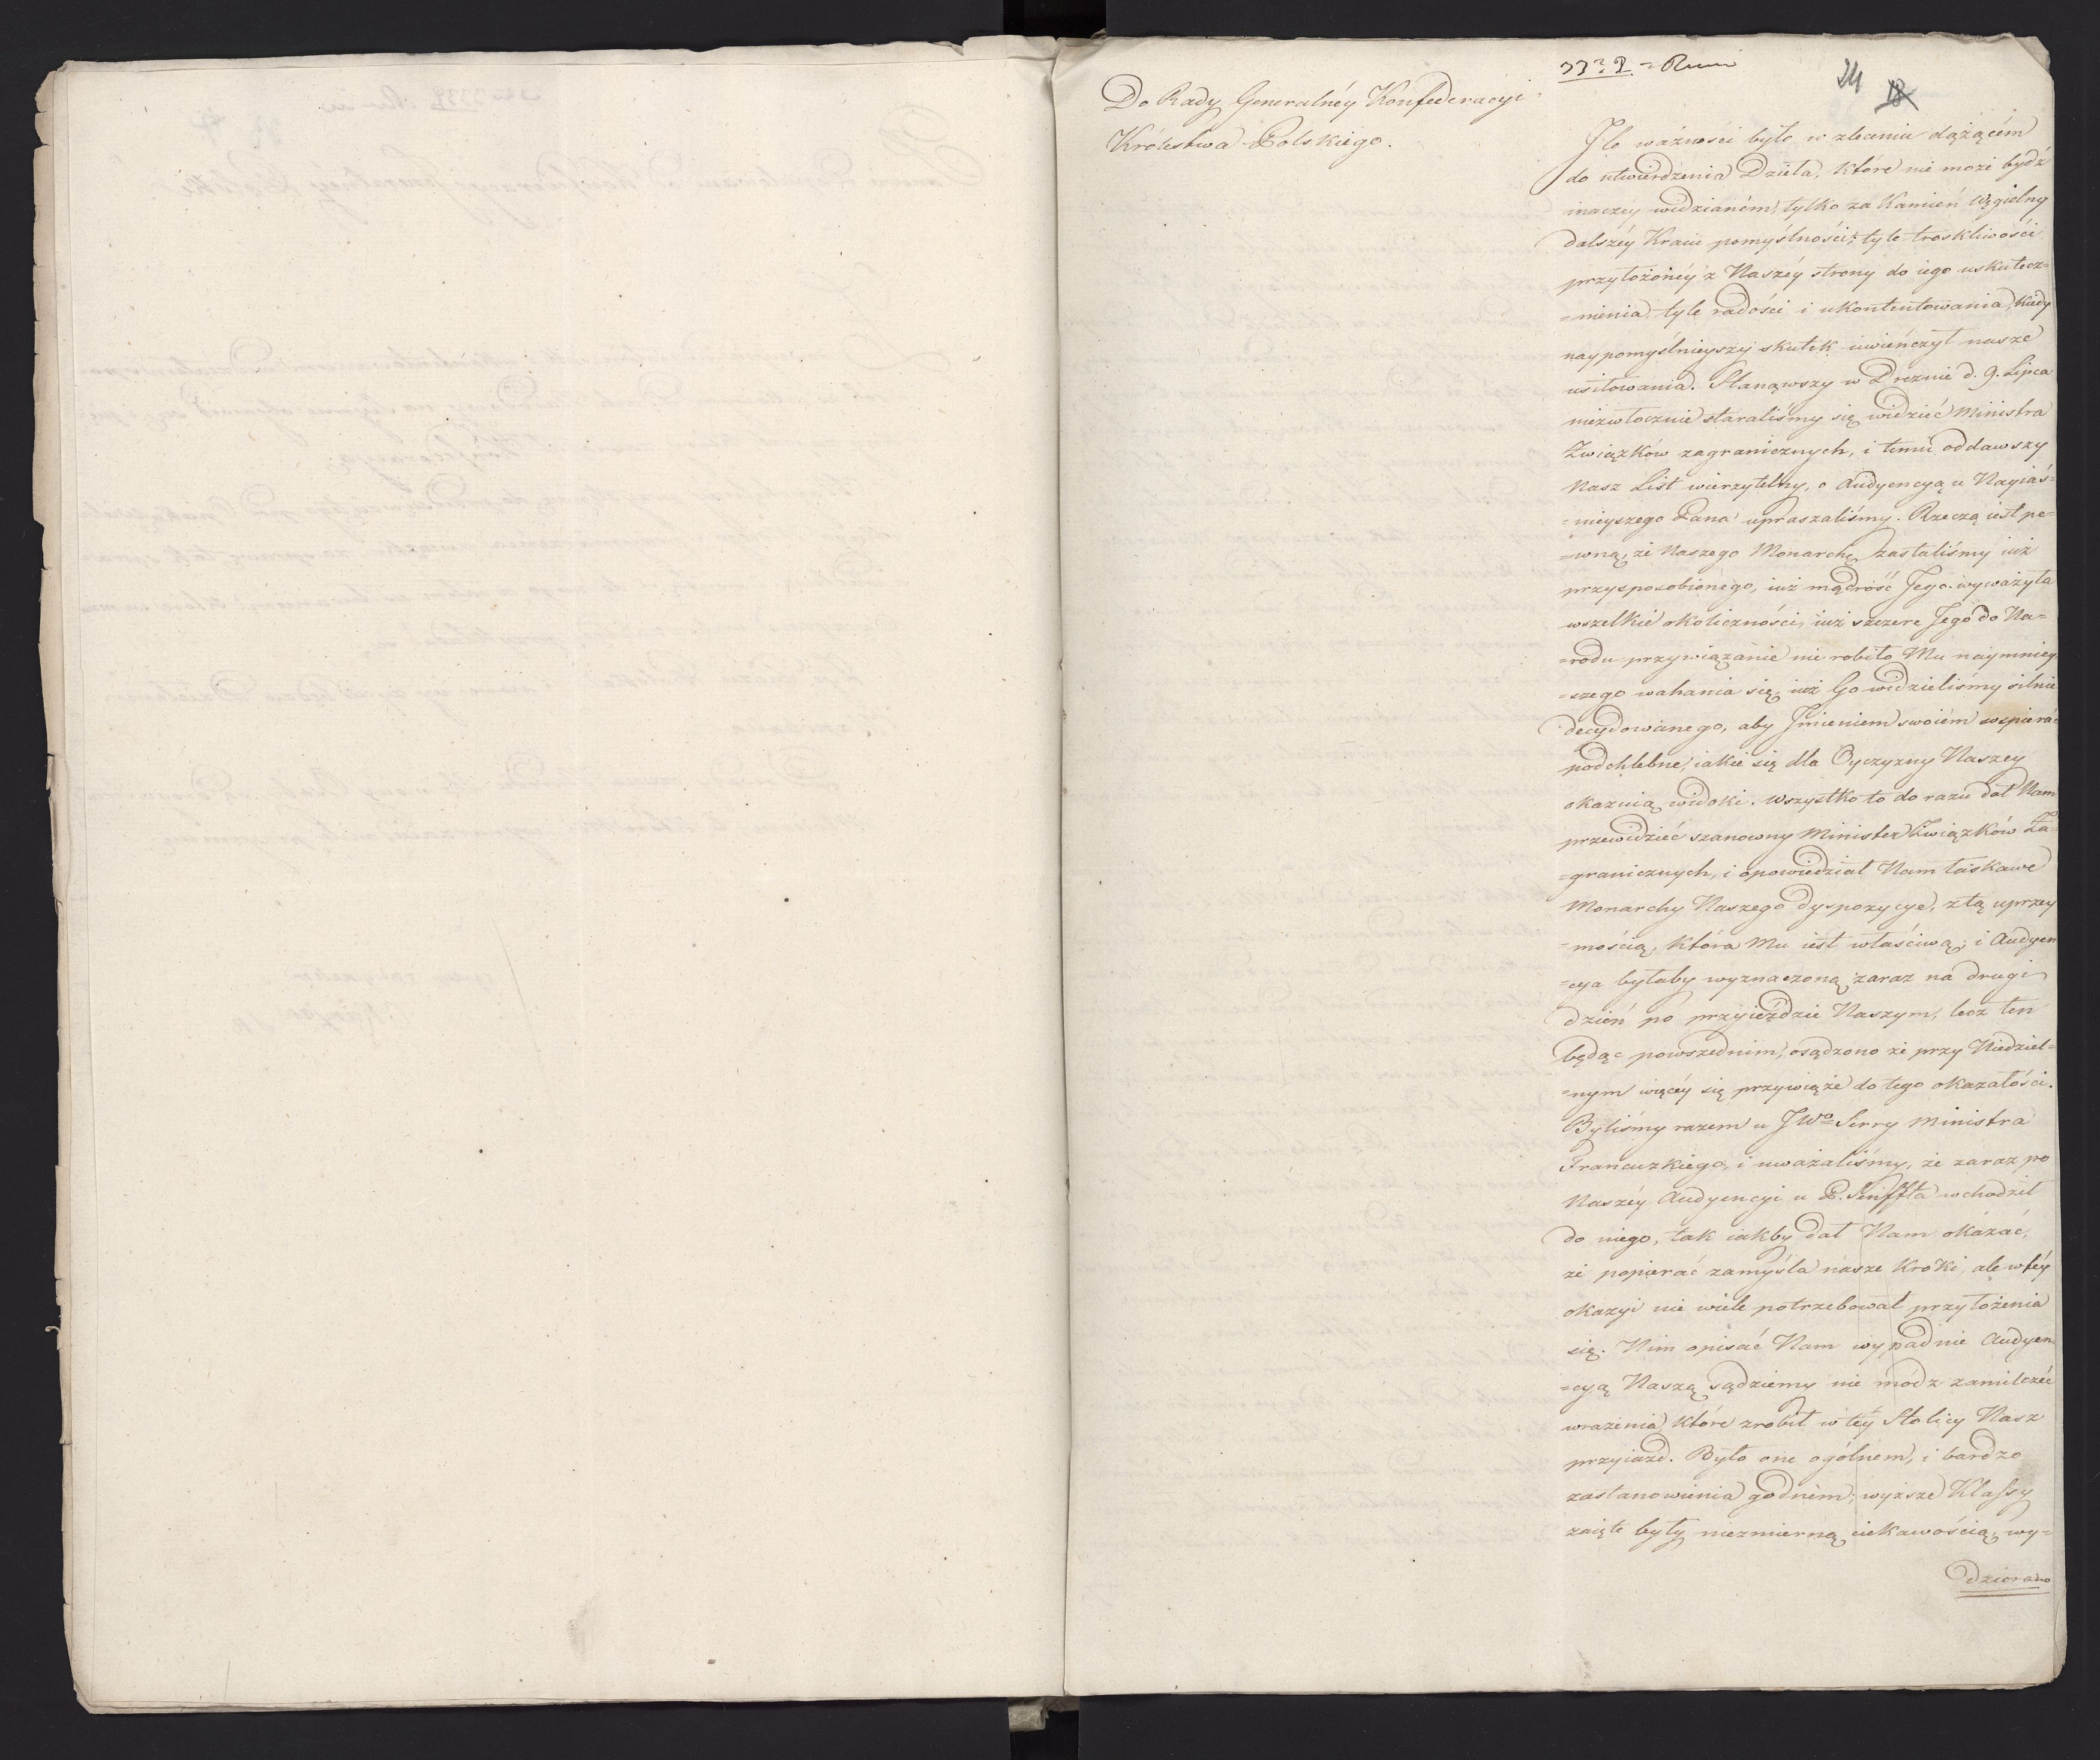 24 18
Do Rady Generalnéy Konfederacyi
Królestwa Polskiego.
Ile ważności było w zleceniu dążącém
do utwierdzenia Dzieła, które nie może bydź
inaczéy widzianém, tylko za Kamień węgielny
dalszéy Kraiu pomyślności; tyle troskliwości
przyłożonéy z Naszéy strony do iego uskutecz=
=nienia, tyle radości i ukontentowania, kiedy
naypomyślnieyszy skutek uwieńczył nasze
usiłowania. Stanąwszy w Dreznie d. 9. Lipca
niezwłocznie staraliśmy się widzieć Ministra
Związków zagranicznych, i temu oddawszy
Nasz List wierzytelny, o Audyencyą u Nayiaś=
=nieyszego Pana upraszaliśmy. Rzeczą iest pe=
=wną, że Naszego Monarchę zastaliśmy iuż
przysposobionego, iuż mądrość Jego wyważyła
wszelkie okoliczności, iuż szczere Jego do Na=
=rodu przywiązanie nie robiło Mu naymniey
=szego wahania się, iuż Go widzieliśmy silnie
decydowanego, aby Imieniem swoiém wspierać
podchlebne, iakie się dla Oyczyzny Naszey
okazuią widoki. Wszystko to do razu dał Nam
przewidzieć szanowny Minister Związków Za=
=granicznych, i opowiedział Nam łaskawe
Monarchy Naszego dyspozycye, z tą uprzey
=mością, która Mu iest właściwą; i Audyen
=cya byłaby wyznaczoną zaraz na drugi
dzień po przyieździe Naszym, lecz ten
będąc powszednim, osądzono że przy Niedziel=
=nym więcéy się przywiąże do tego okazałości.
Byliśmy razem u JWo Serry Ministra
Francuzkiego, i uważaliśmy, że zaraz po
Naszéy Audyencyi u P. Senffta wchodził
do niego, tak iakby dał Nam okazać,
że popierać zamyśla nasze kroki, ale w téy
okazyi nie wiele potrzebował przyłożenia
się. Nim opisać Nam wypadnie Audyen
=cyą Naszą sądziemy nie módz zamilczéć
wrażenia, które zrobił w téy Stolicy Nasz
przyiazd. Było one ogólnem, i bardzo
zastanowienia godném; wyższe Klassy
zaięte były niezmierną ciekawością, wy=
dzierano